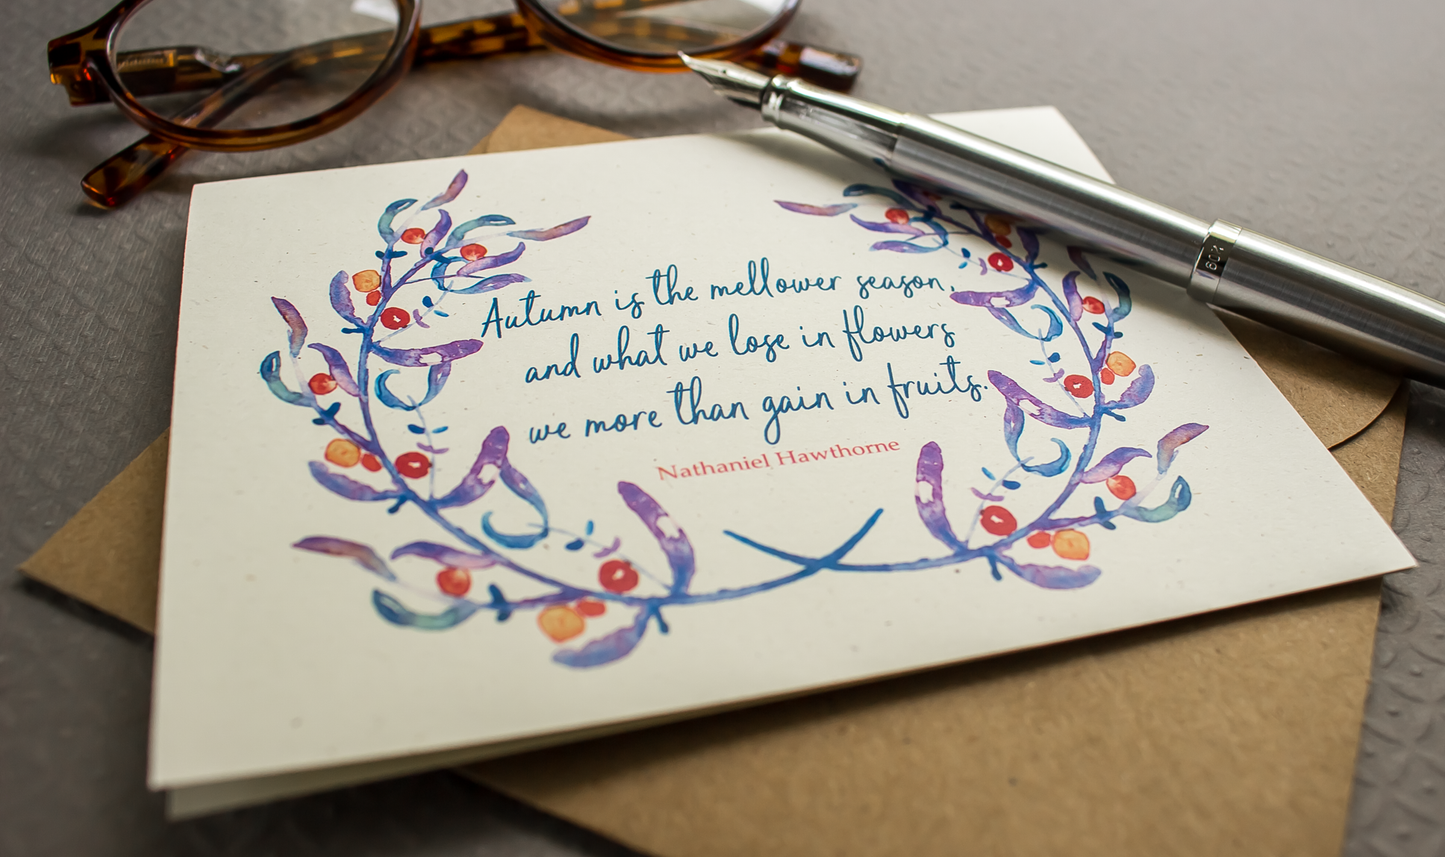 Autumn is the mellower season,
and what we lose in flowers
we more than gain in fruits.
Nathaniel Hawthorne